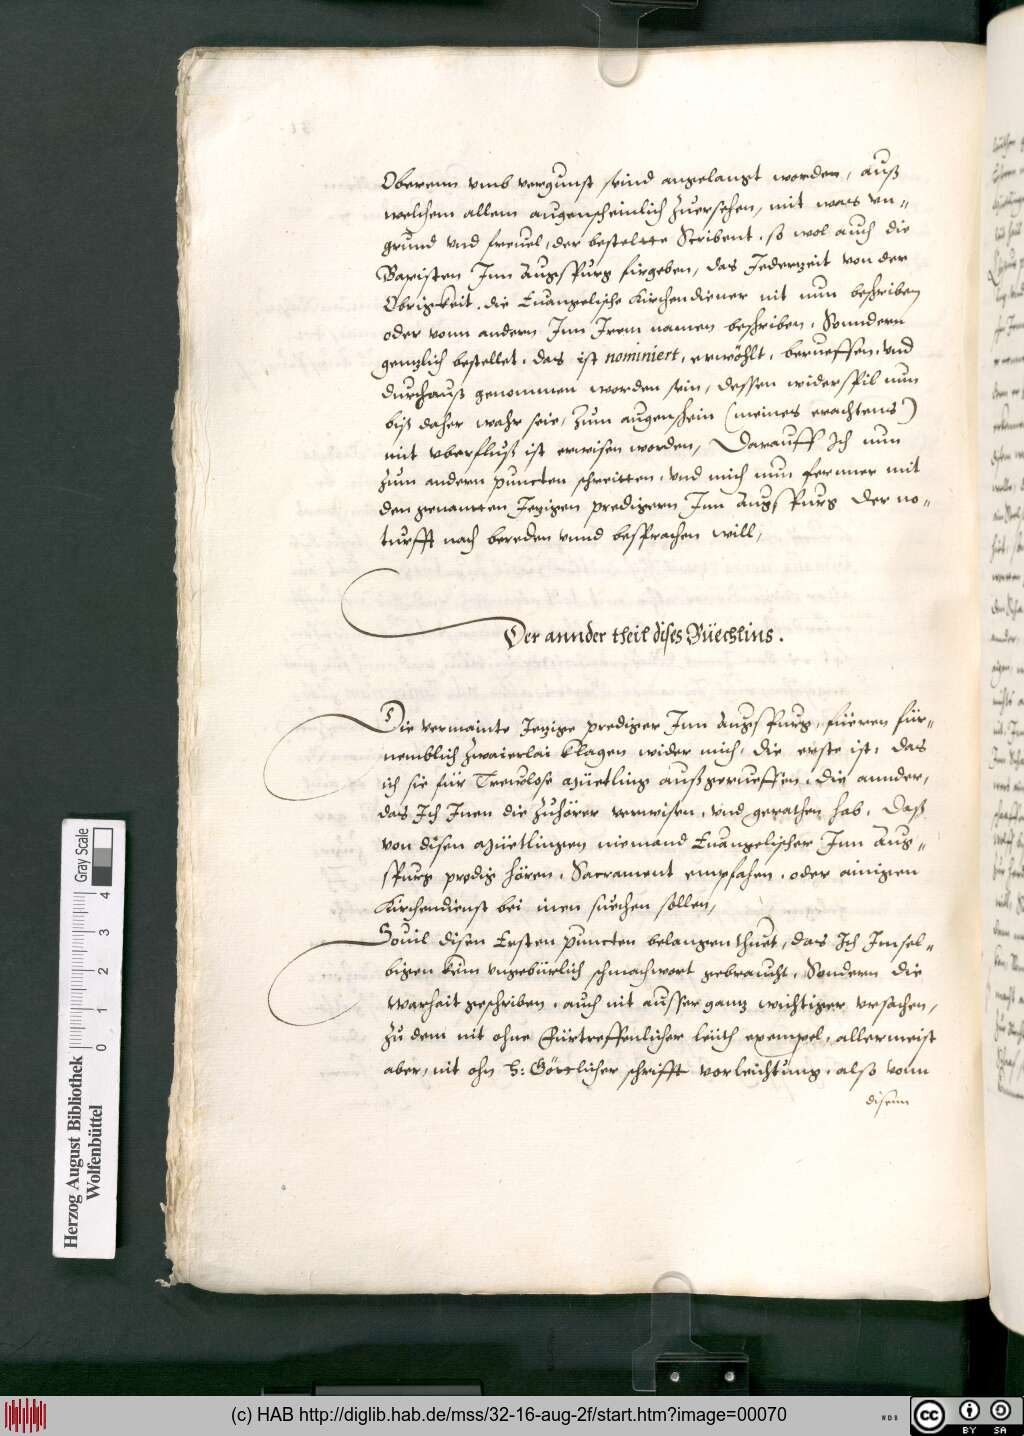 Oberenn vmb vergunst seind angelangt worden, auß
welchem allem augenscheinlich zuersehen, mit was vn-
grund vnd freuel, der bestellte Scribent, so wol auch die
Papisten Inn Augspurg fürgeben, das Jederzeit von der
Obrigkeit, die Euangelische Kirchendiener nit nun beschriben
oder vonn andern Inn Irem namen beschriben, Sonndern
genzlich bestellet, das ist nominiert, erwöhlt, berueffen, vnd
durchauß genommen worden sein, dessen widerspil nun
biß daher wahr seie, zum augenschein (meines erachtens)
mit vberfluß ist erwisen worden, Darauff Ich nun
zum andern puncten schreitten, vnd mich nun ferrner mit
den genannten Jezigen predigern Inn Augspurg der no-
turfft nach bereden vnnd besprachen will,
Der annder theil dises Büechlins.
Die vermainte Jezige prediger Inn Augspurg, füeren für-
nemblich zwaierlai klagen wider mich, die erste ist, das
ich sie für Trewlose Müetling außgerueffen, die annder,
das Ich Inen die zuhörer verwisen, vnd gerathen hab, Daß
von disen Müetlingen niemand Euangelischer Inn Aug-
spurg predig hören, Sacrament empfahen, oder ainigen
Kirchendienst bei inen suechen sollen,
Souil disen Ersten puncten belangen thuet, das Ich Imsel-
bigen kein vngebürlich schmachwort gebraucht, Sondern die
Warheit geschriben, auch nit ausser gantz wichtiger vrsachen,
zu dem nit ohne Fürtreffenlicher leüth exempel, allermeist
aber, nit ohn H: Göttlicher schrifft vorleichtung, alß vonn
disenn
Herzog August Bibliothek
Wolfenbüttel
0 1 2 3 4
Gray Scale
(c) HAB http://diglib.hab.de/mss/32-16-aug-2f/start.htm?image=00070
WDB
cc BY SA